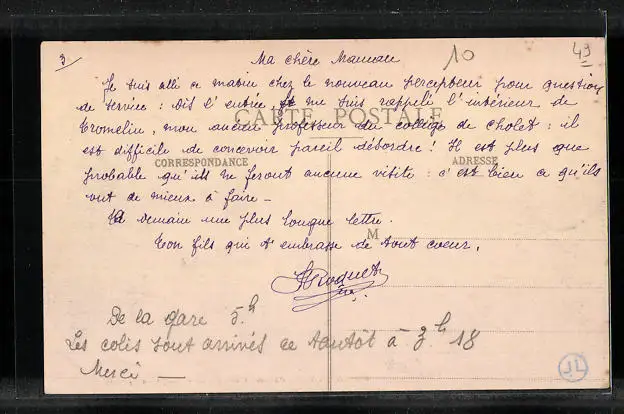 3
Ma chère Maman
10
49
Je suis allé ce matin chez le nouveau percepteur pour question
de service : dès l'entrée je me suis rappelé l'intérieur de
Tromelin, mon ancien professeur du collège de Cholet : il
est difficile de concevoir pareil désordre ! Il est plus que
probable qu'ils ne feront aucune visite : c'est bien ce qu'ils
ont de mieux à faire —
A demain une plus longue lettre.
Ton fils qui t'embrasse de tout coeur,
Roquet
CARTE POSTALE
CORRESPONDANCE
ADRESSE
M
De la gare 5h
Les colis sont arrivés ce tantôt à 3h 18
Merci —
JL